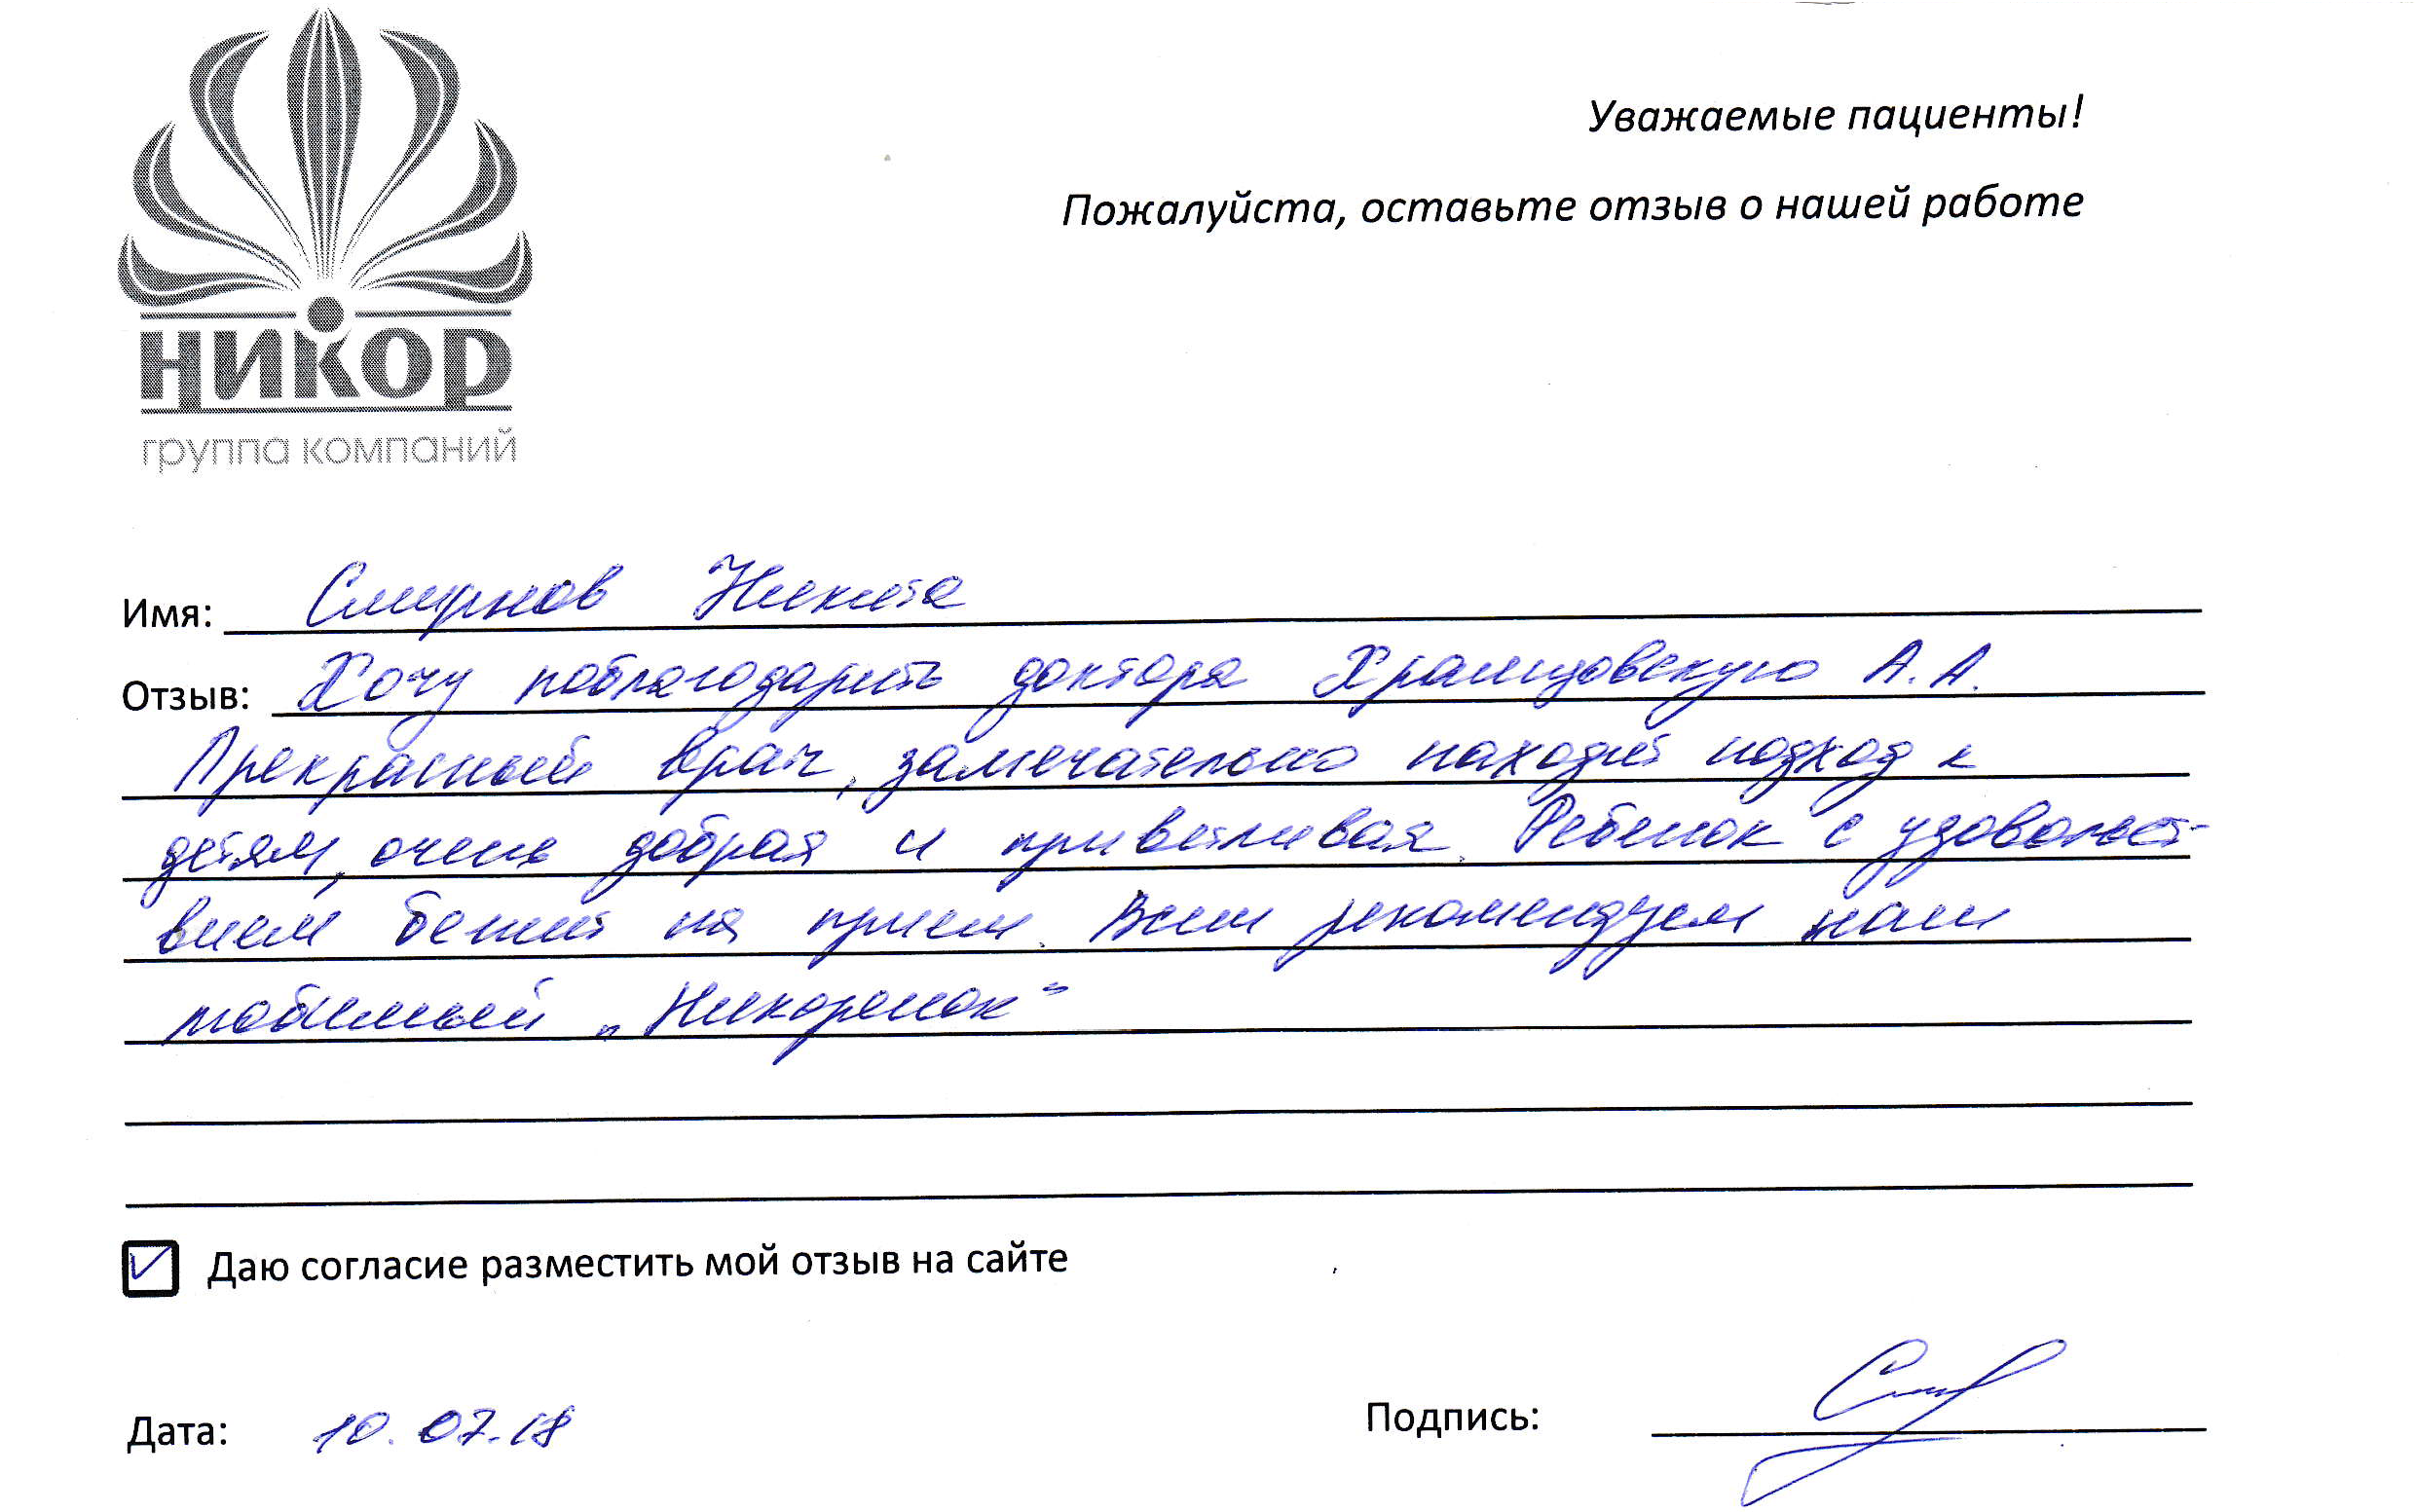 Уважаемые пациенты!
Пожалуйста, оставьте отзыв о нашей работе
НИКОР
группа компаний
Имя: Смирнов Никита
Отзыв: Хочу поблагодарить доктора Храмцовскую А.А.
Прекрасный врач, замечательно находит подход к
детям, очень добрая и приветливая. Ребенок с удовольст-
вием бежит на прием. Всем рекомендуем наш
любимый „Никоренок"
Даю согласие разместить мой отзыв на сайте
Дата: 10.07.18
Подпись: